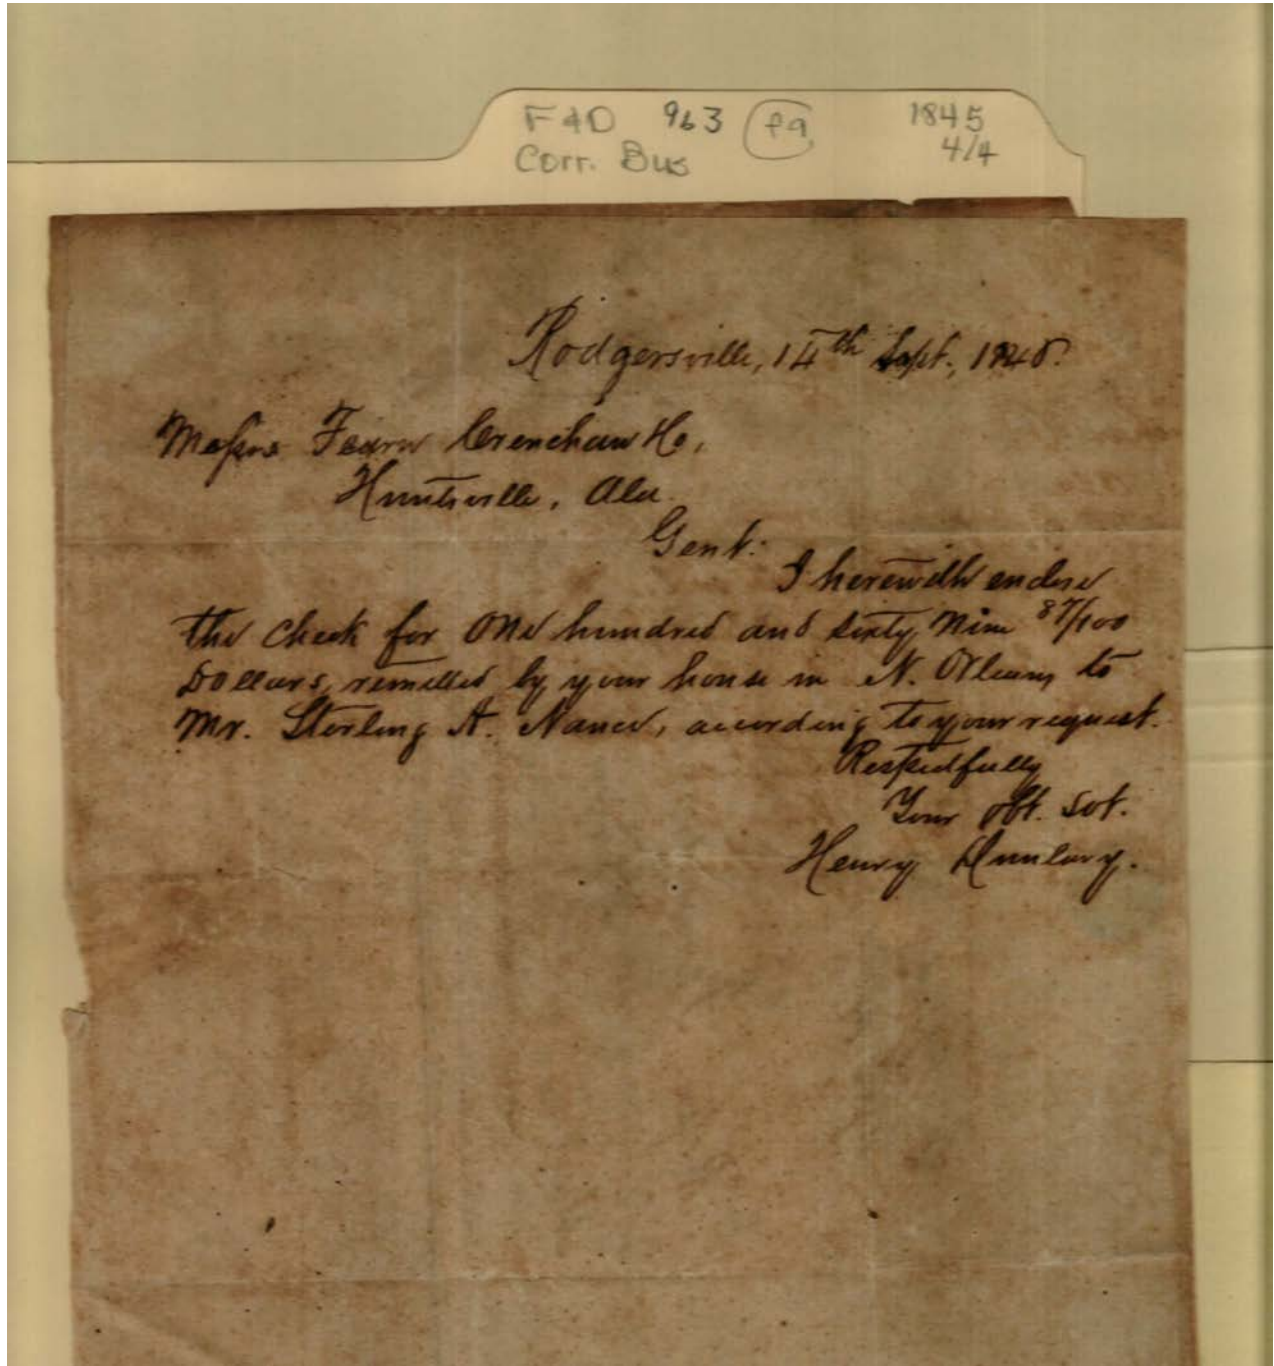 F&D 963 fa 1845
Corr. Bus 4/4
Rodgersville, 14th Sept., 1845.
Messrs Fearn Crenshaw & Co,
Huntsville, Ala.
Gent:
I herewith enclose
the check for One hundred and sixty Nine 87/100
Dollars, remitted by your house in N. Orleans to
Mr. Sterling A. Nance, according to your request.
Respectfully
Your obt. svt.
Henry